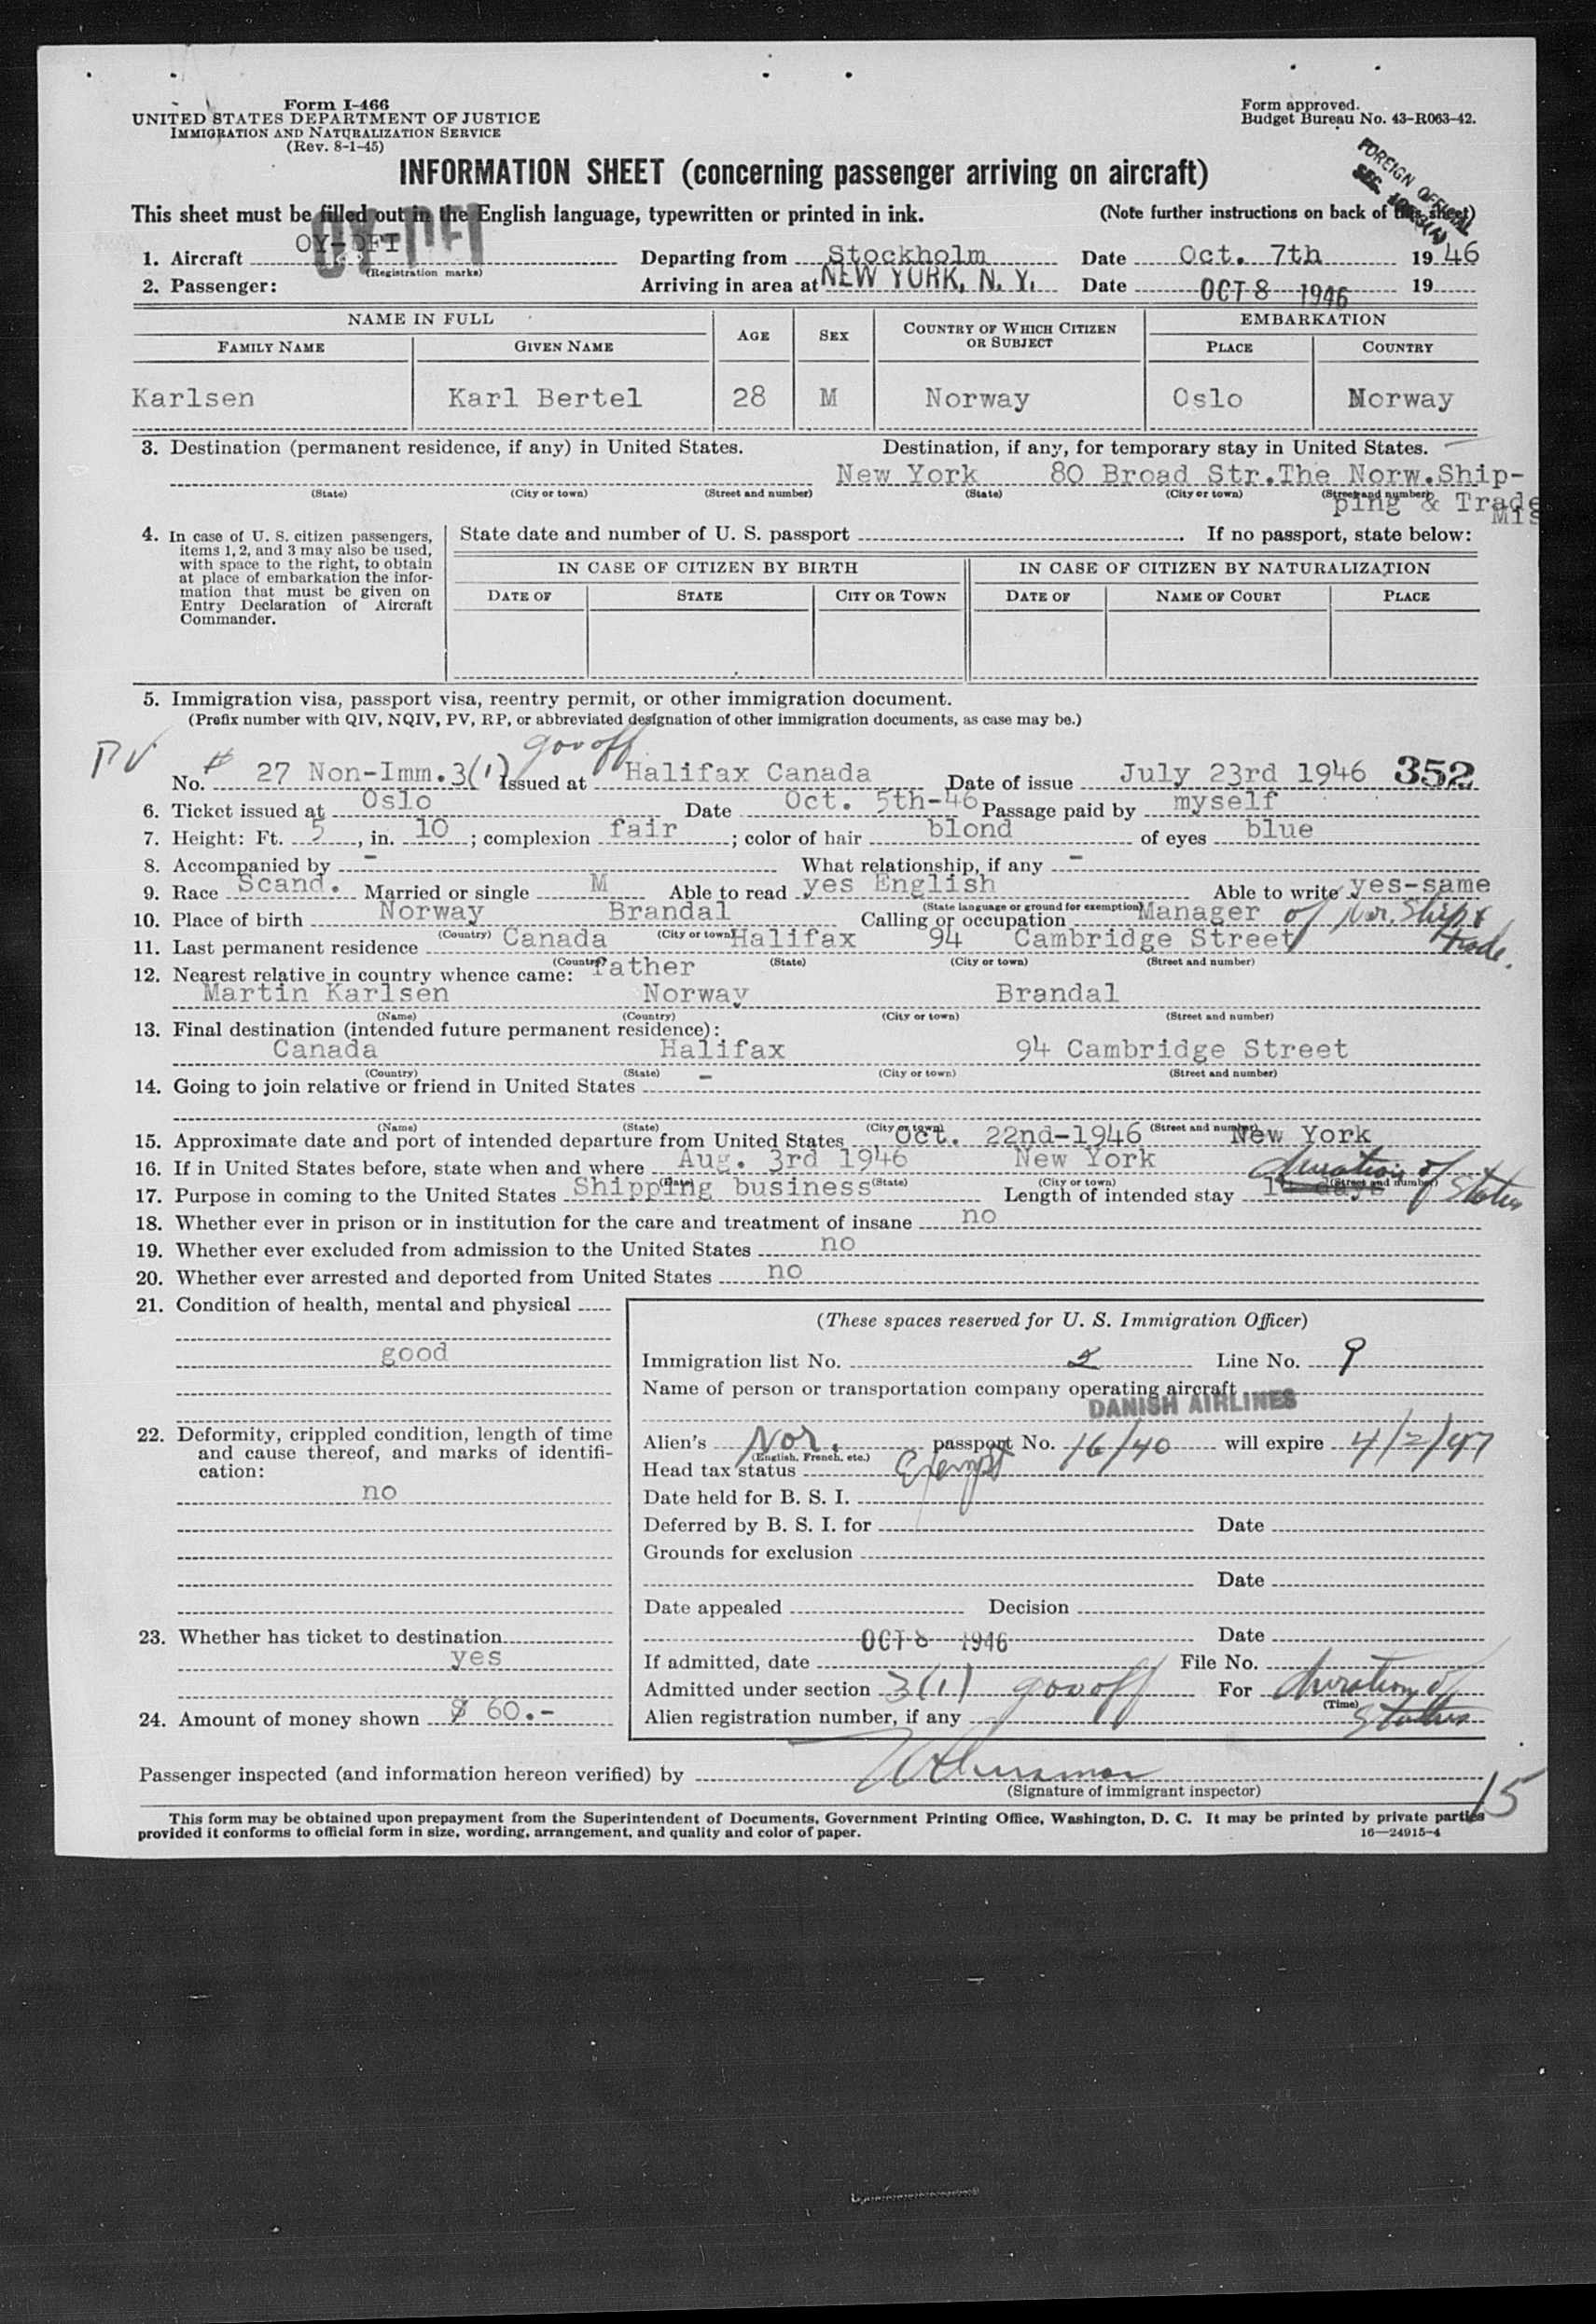 Form I-466
UNITED STATES DEPARTMENT OF JUSTICE
IMMIGRATION AND NATURALIZATION SERVICE
(Rev. 8-1-45)
Form approved.
Budget Bureau No. 43-R063-42.
INFORMATION SHEET (concerning passenger arriving on aircraft)
FOREIGN OFFICIAL
This sheet must be filled out in the English language, typewritten or printed in ink. (Note further instructions on back of this sheet)
OY-DFI
1. Aircraft OY-DFI (Registration marks) Departing from Stockholm Date Oct. 7th 1946
2. Passenger: Arriving in area at NEW YORK, N. Y. Date OCT 8 1946 19
NAME IN FULL AGE SEX COUNTRY OF WHICH CITIZEN OR SUBJECT EMBARKATION
FAMILY NAME GIVEN NAME PLACE COUNTRY
Karlsen Karl Bertel 28 M Norway Oslo Norway
3. Destination (permanent residence, if any) in United States. Destination, if any, for temporary stay in United States.
New York 80 Broad Str.The Norw.Ship-
(State) (City or town) (Street and number) (State) (City or town) (Street and number)
ping & Trade
Mis
4. In case of U. S. citizen passengers, items 1, 2, and 3 may also be used, with space to the right, to obtain at place of embarkation the information that must be given on Entry Declaration of Aircraft Commander.
State date and number of U. S. passport If no passport, state below:
IN CASE OF CITIZEN BY BIRTH IN CASE OF CITIZEN BY NATURALIZATION
DATE OF STATE CITY OR TOWN DATE OF NAME OF COURT PLACE
5. Immigration visa, passport visa, reentry permit, or other immigration document.
(Prefix number with QIV, NQIV, PV, RP, or abbreviated designation of other immigration documents, as case may be.)
PV gov off
No. # 27 Non-Imm. 3(1) Issued at Halifax Canada Date of issue July 23rd 1946 352
6. Ticket issued at Oslo Date Oct. 5th-46 Passage paid by myself
7. Height: Ft. 5, in. 10; complexion fair; color of hair blond of eyes blue
8. Accompanied by - What relationship, if any -
9. Race Scand. Married or single M Able to read yes English Able to write yes-same
(State language or ground for exemption)
10. Place of birth Norway Brandal Calling or occupation Manager of Nor. Ship & trade.
(Country) (City or town)
11. Last permanent residence Canada Halifax 94 Cambridge Street
(Country) (State) (City or town) (Street and number)
12. Nearest relative in country whence came: father
Martin Karlsen Norway Brandal
(Name) (Country) (City or town) (Street and number)
13. Final destination (intended future permanent residence):
Canada Halifax 94 Cambridge Street
(Country) (State) (City or town) (Street and number)
14. Going to join relative or friend in United States -
(Name) (State) (City or town) (Street and number)
15. Approximate date and port of intended departure from United States Oct. 22nd-1946 New York
16. If in United States before, state when and where Aug. 3rd 1946 New York
(Date) (State) (City or town) (Street and number)
duration of status
17. Purpose in coming to the United States Shipping business Length of intended stay
18. Whether ever in prison or in institution for the care and treatment of insane no
19. Whether ever excluded from admission to the United States no
20. Whether ever arrested and deported from United States no
21. Condition of health, mental and physical
good
22. Deformity, crippled condition, length of time and cause thereof, and marks of identification:
no
23. Whether has ticket to destination
yes
24. Amount of money shown $ 60.-
(These spaces reserved for U. S. Immigration Officer)
Immigration list No. 2 Line No. 9
Name of person or transportation company operating aircraft
DANISH AIRLINES
Alien's Nor. passport No. 16/40 will expire 4/2/47
(English, French, etc.)
Head tax status Exempt
Date held for B. S. I.
Deferred by B. S. I. for Date
Grounds for exclusion
Date
Date appealed Decision
OCT 8 1946 Date
If admitted, date File No.
Admitted under section 3(1) gov off For duration of status
(Time)
Alien registration number, if any
Passenger inspected (and information hereon verified) by
(Signature of immigrant inspector)
15
This form may be obtained upon prepayment from the Superintendent of Documents, Government Printing Office, Washington, D. C. It may be printed by private parties
provided it conforms to official form in size, wording, arrangement, and quality and color of paper. 16—24915-4